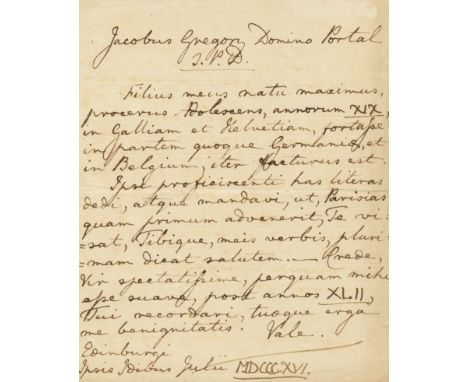 Jacobus Gregory Domino Portal
S. P. D.
Filius meus natu maximus,
procerus Adolescens, annorum XIX,
in Galliam et Helvetiam, fortaſse
in partem quoque Germaniæ, et
in Belgium, iter facturus est.
Ipsi proficiscenti has literas
dedi, atque mandavi, ut, Parisias
quam primum advenerit, Te vi=
=sat, Tibique, meis verbis, pluri=
=mam dicat salutem. — Crede,
Vir spectatiſsime, perquam mihi
eſse suave, post annos XLII,
Tui recordari, tuæque erga
me benignitatis. Vale.
Edinburgi
Ipsis Idibus Julii MDCCCXVI.